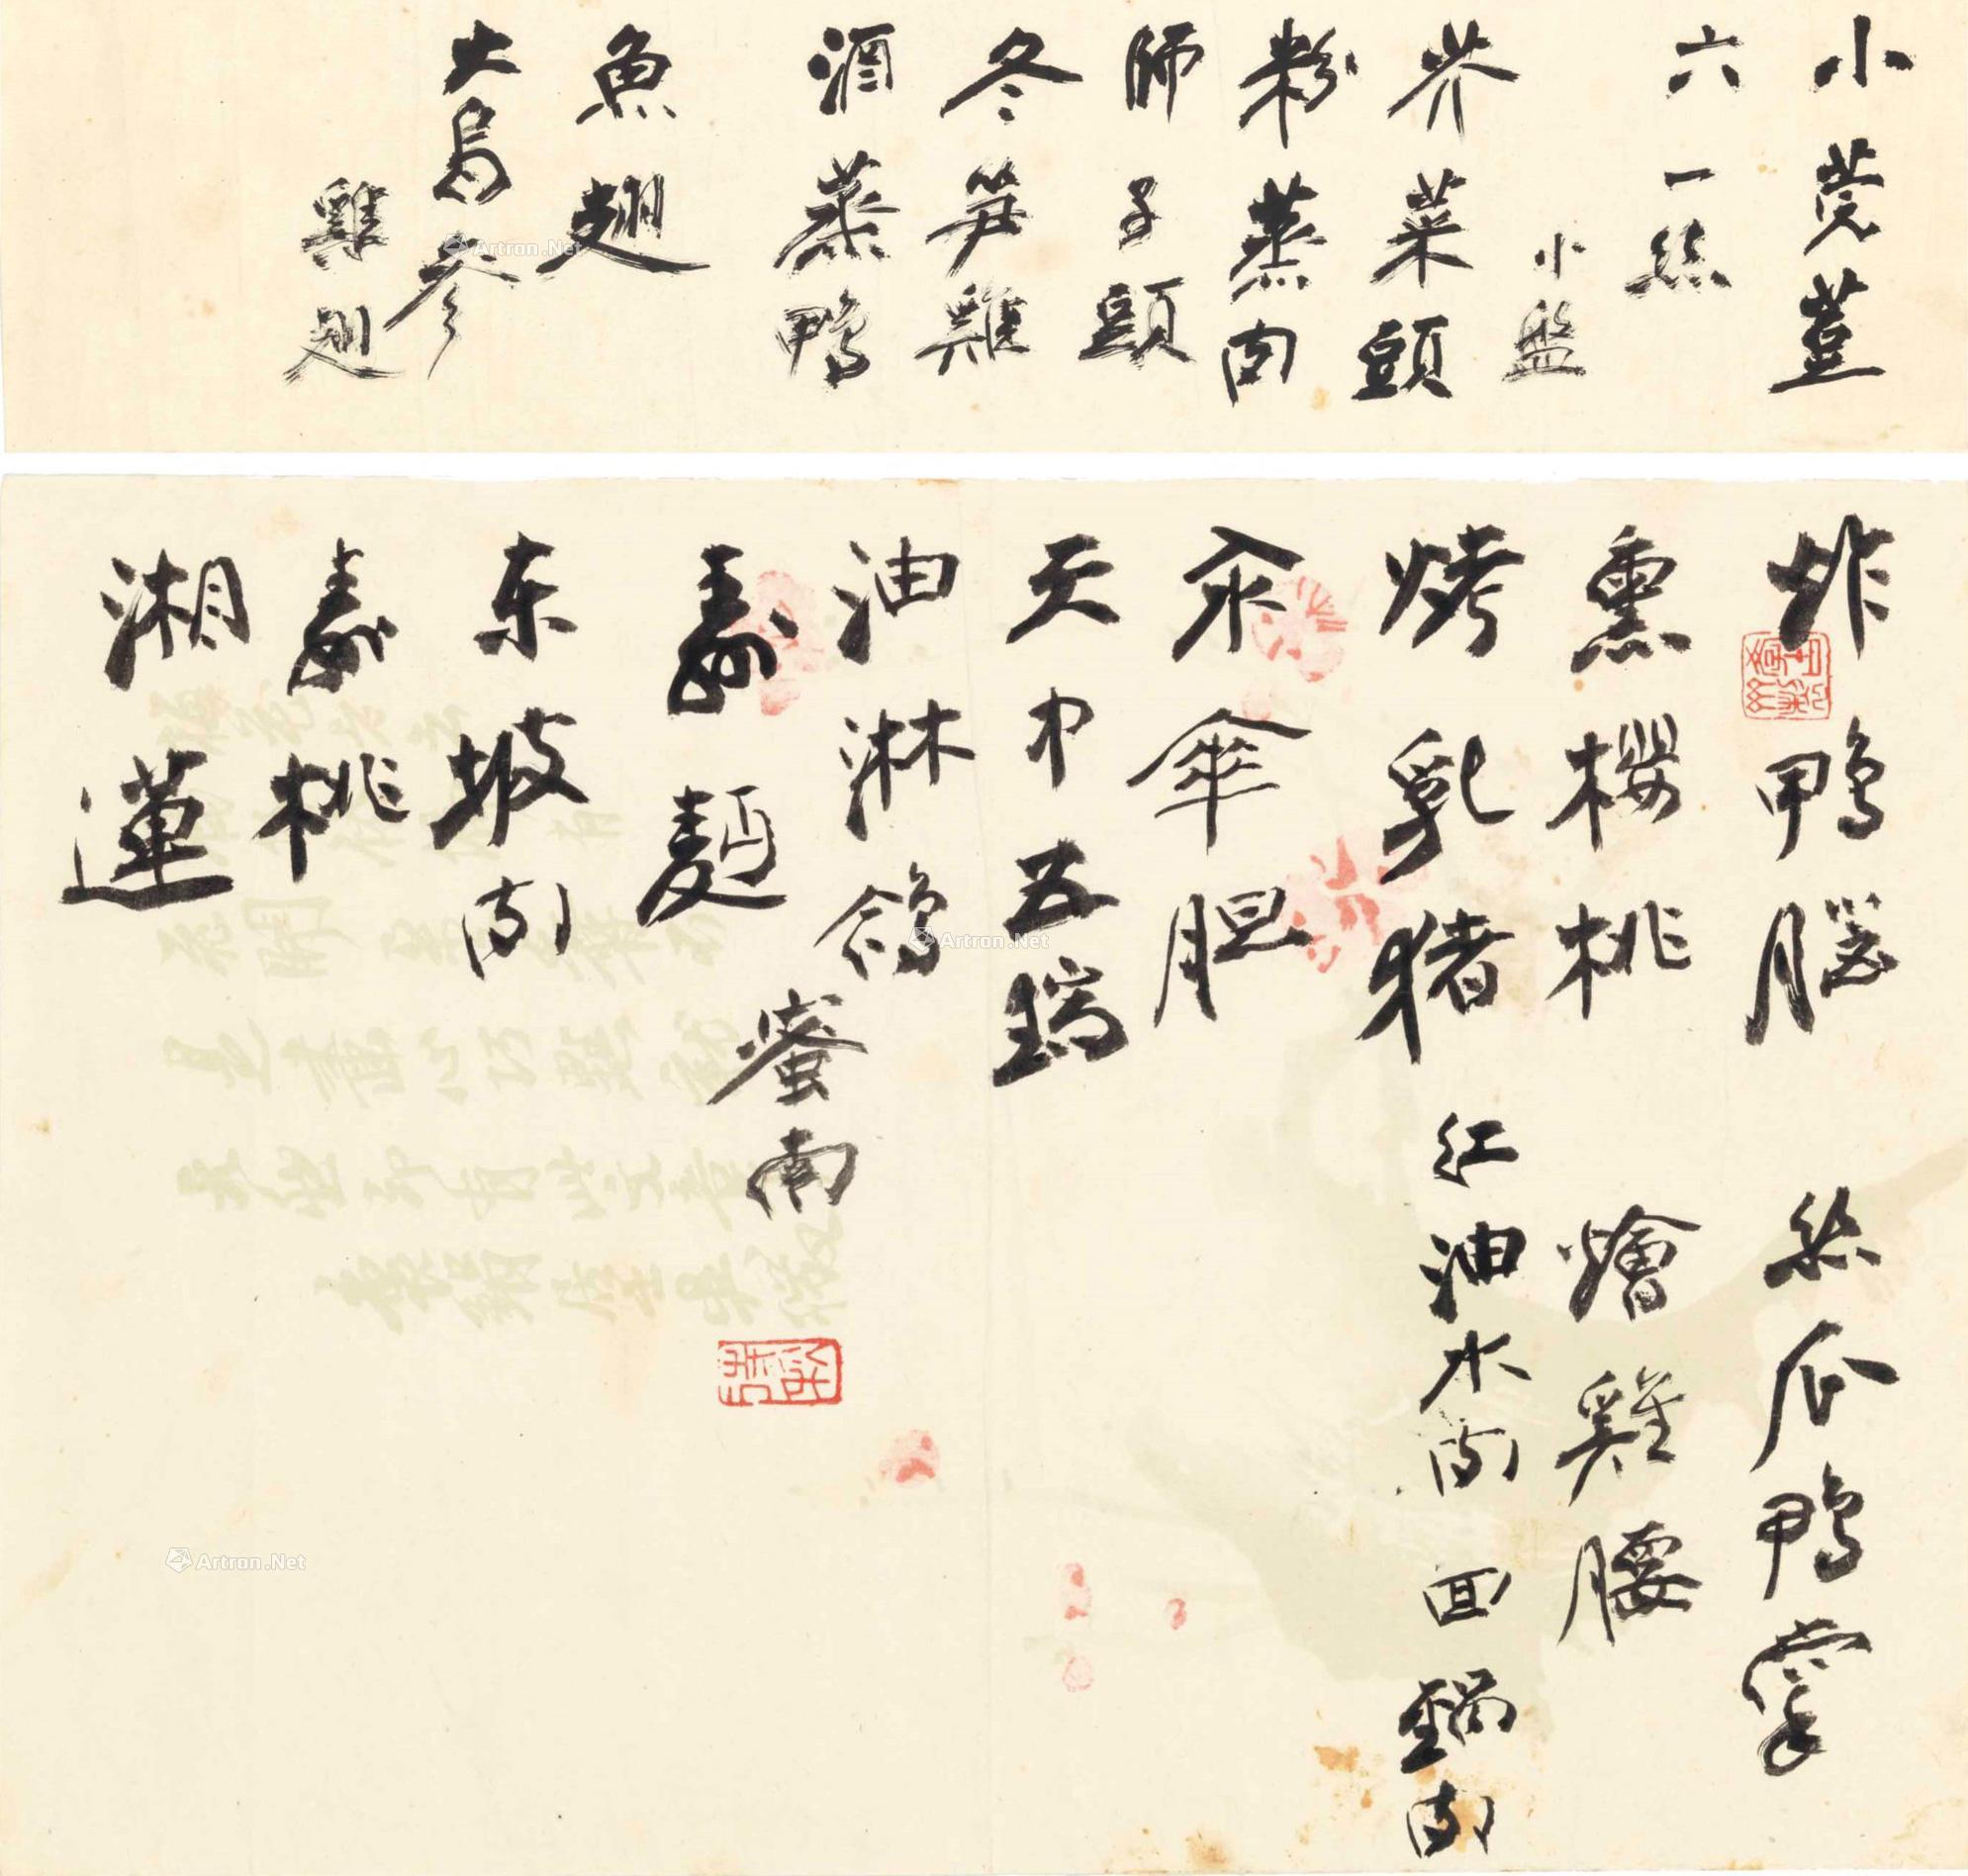 小莞荳
六一絲
小盤
芥菜頭
粉蒸肉
師子頭
冬笋雞
酒蒸鴨
魚翅
大烏参
雞翅
炸鴨腦 絲瓜鴨掌
熏櫻桃 燴雞腰
烤乳猪 红油水肉 回鍋肉
汆傘胆
天中五瑞
油淋鴿
壽麵 蜜南
东坡肉
壽桃
湘蓮
Artron.Net
Artron.Net
Artron.Net